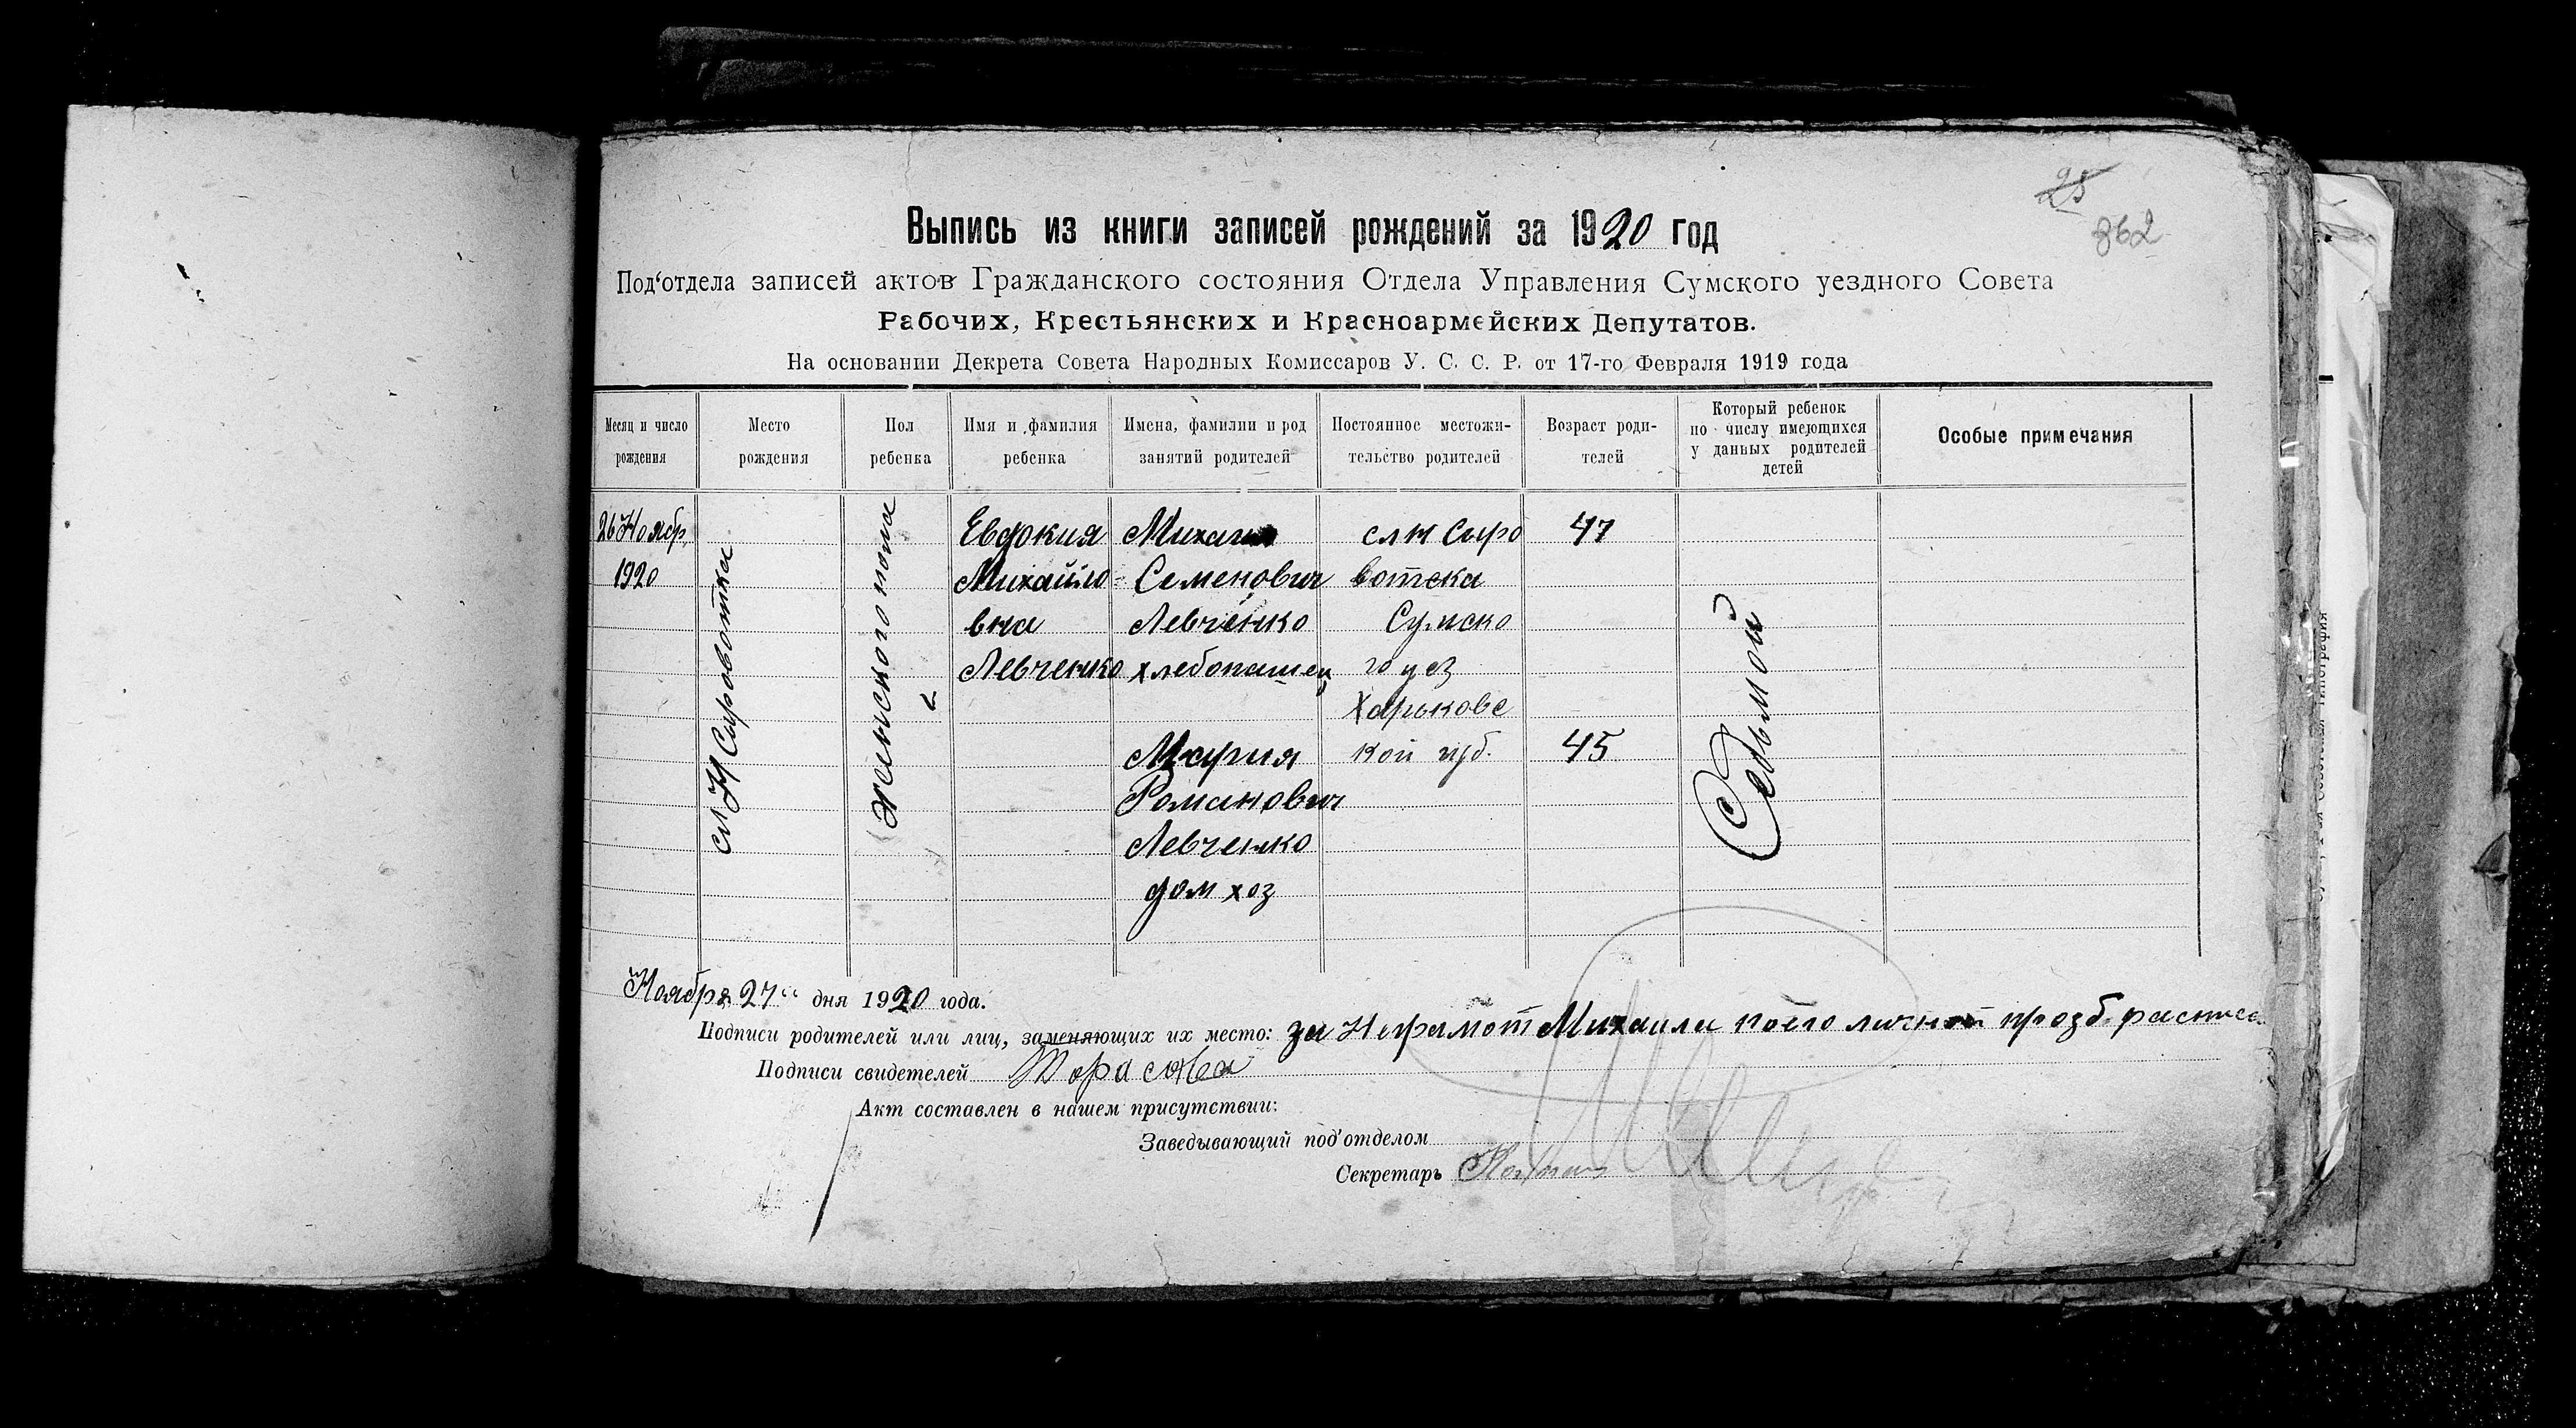 25
862
Выпись из книги записей рождений за 1920 год
Под'отдела записей актов Гражданского состояния Отдела Управления Сумского уездного Совета
Рабочих, Крестьянских и Красноармейских Депутатов.
На основании Декрета Совета Народных Комиссаров У. С. С. Р. от 17-го Февраля 1919 года
Месяц и число
рождения
Место
рождения
Пол
ребенка
Имя и фамилия
ребенка
Имена, фамилии и род
занятий родителей
Постоянное местожи-
тельство родителей
Возраст роди-
телей
Который ребенок
по числу имеющихся
у данных родителей
детей
Особые примечания
26 Ноябр
1920
сл Н Сыроватка
женского пола
Евдокия
Михайло
вна
Левченко
Михаил
Семенович
Левченко
хлебопашец
Мария
Романович
Левченко
дом хоз
сл Н Сыро
ватска
Сумско
го уез
Харьковс
кой губ.
47
45
Седьмой
Ноября 27 " дня 1920 года.
Подписи родителей или лиц, заменяющих их место: за Неграмот Михаила по его личной прозб расписа
Подписи свидетелей
Акт составлен в нашем присутствии:
Заведывающий под'отделом
Секретарь